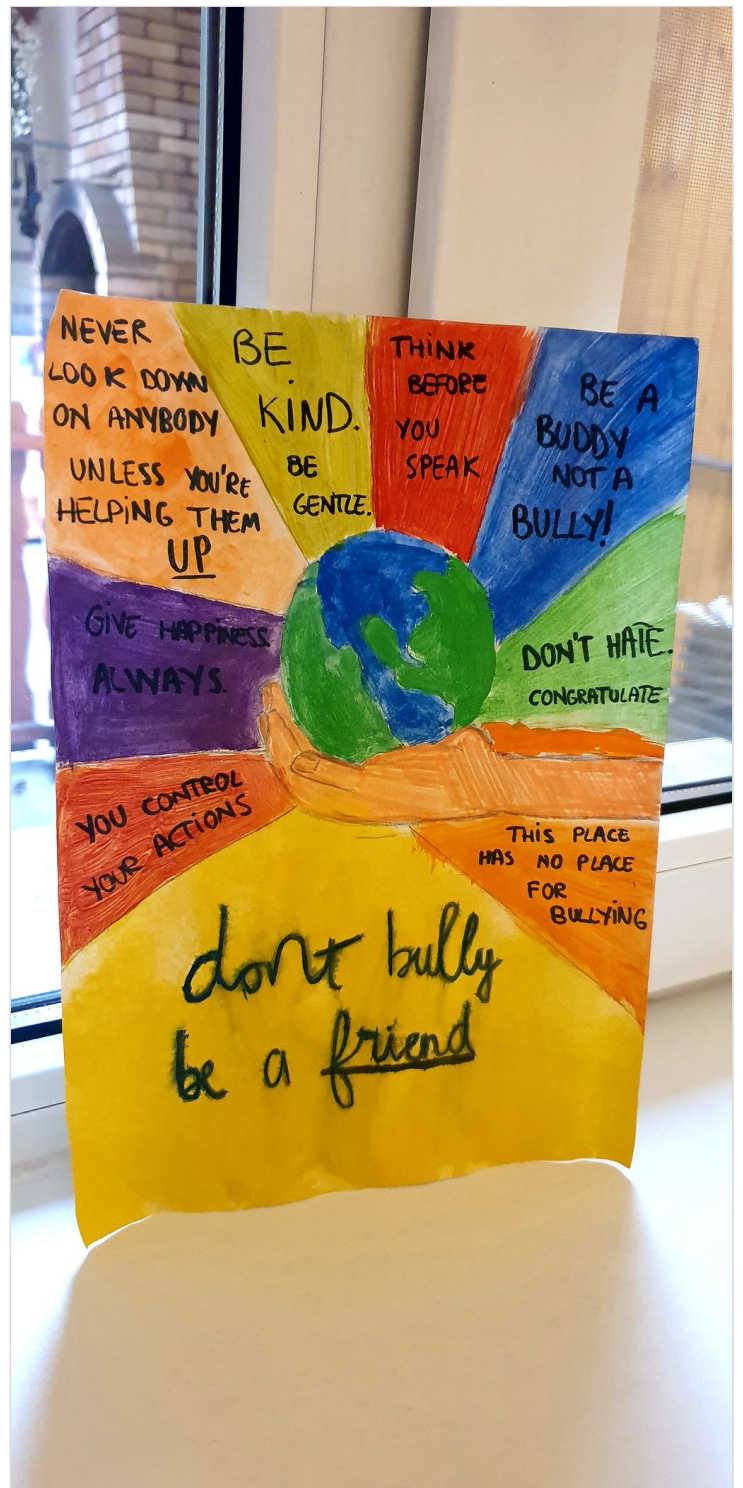 NEVER
LOOK DOWN
ON ANYBODY
UNLESS YOU'RE
HELPING THEM
UP
BE
KIND.
BE
GENTLE.
THINK
BEFORE
YOU
SPEAK
BE A
BUDDY
NOT A
BULLY!
GIVE HAPPINESS
ALWAYS.
DON'T HATE.
CONGRATULATE
YOU CONTROL
YOUR ACTIONS
THIS PLACE
HAS NO PLACE
FOR
BULLYING
don't bully
be a friend